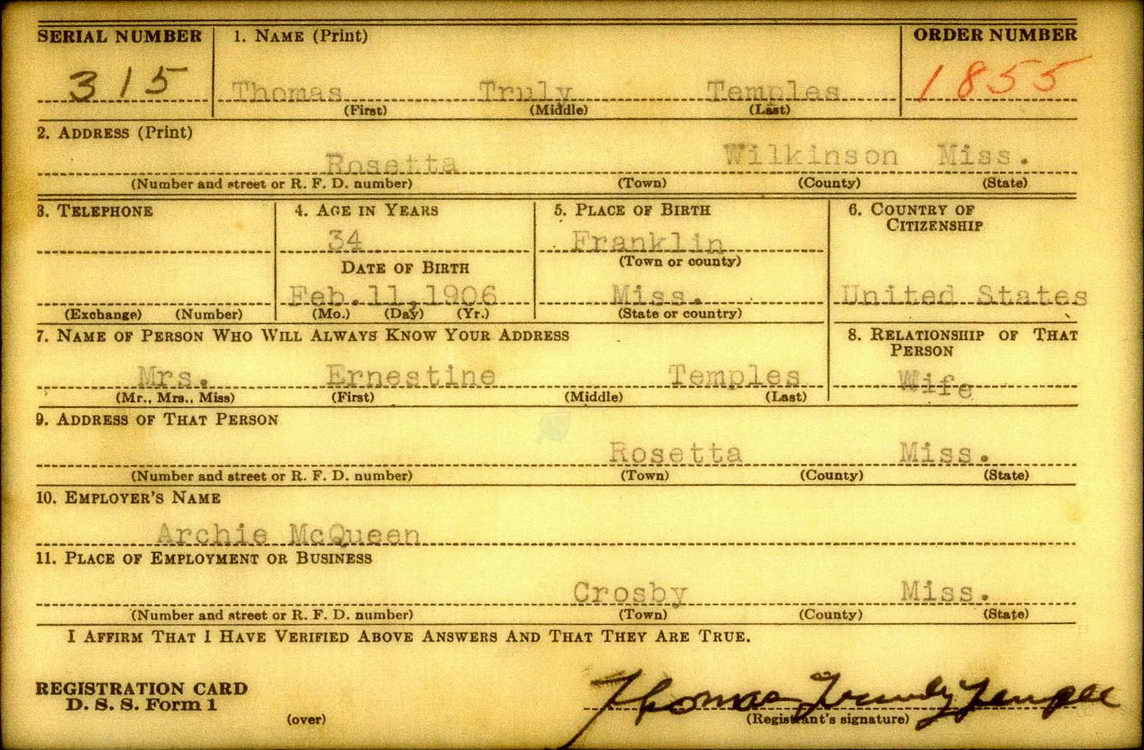 SERIAL NUMBER 1. NAME (Print) ORDER NUMBER
315 Thomas Truly Temples 1855
(First) (Middle) (Last)
2. ADDRESS (Print)
Rosetta Wilkinson Miss.
(Number and street or R. F. D. number) (Town) (County) (State)
3. TELEPHONE 4. AGE IN YEARS 5. PLACE OF BIRTH 6. COUNTRY OF
CITIZENSHIP
34 Franklin
DATE OF BIRTH (Town or county)
Feb.11,1906 Miss. United States
(Exchange) (Number) (Mo.) (Day) (Yr.) (State or country)
7. NAME OF PERSON WHO WILL ALWAYS KNOW YOUR ADDRESS 8. RELATIONSHIP OF THAT
PERSON
Mrs. Ernestine Temples Wife
(Mr., Mrs., Miss) (First) (Middle) (Last)
9. ADDRESS OF THAT PERSON
Rosetta Miss.
(Number and street or R. F. D. number) (Town) (County) (State)
10. EMPLOYER'S NAME
Archie McQueen
11. PLACE OF EMPLOYMENT OR BUSINESS
Crosby Miss.
(Number and street or R. F. D. number) (Town) (County) (State)
I AFFIRM THAT I HAVE VERIFIED ABOVE ANSWERS AND THAT THEY ARE TRUE.
REGISTRATION CARD
D. S. S. Form 1
(over)
Thomas
(Registrant's signature)